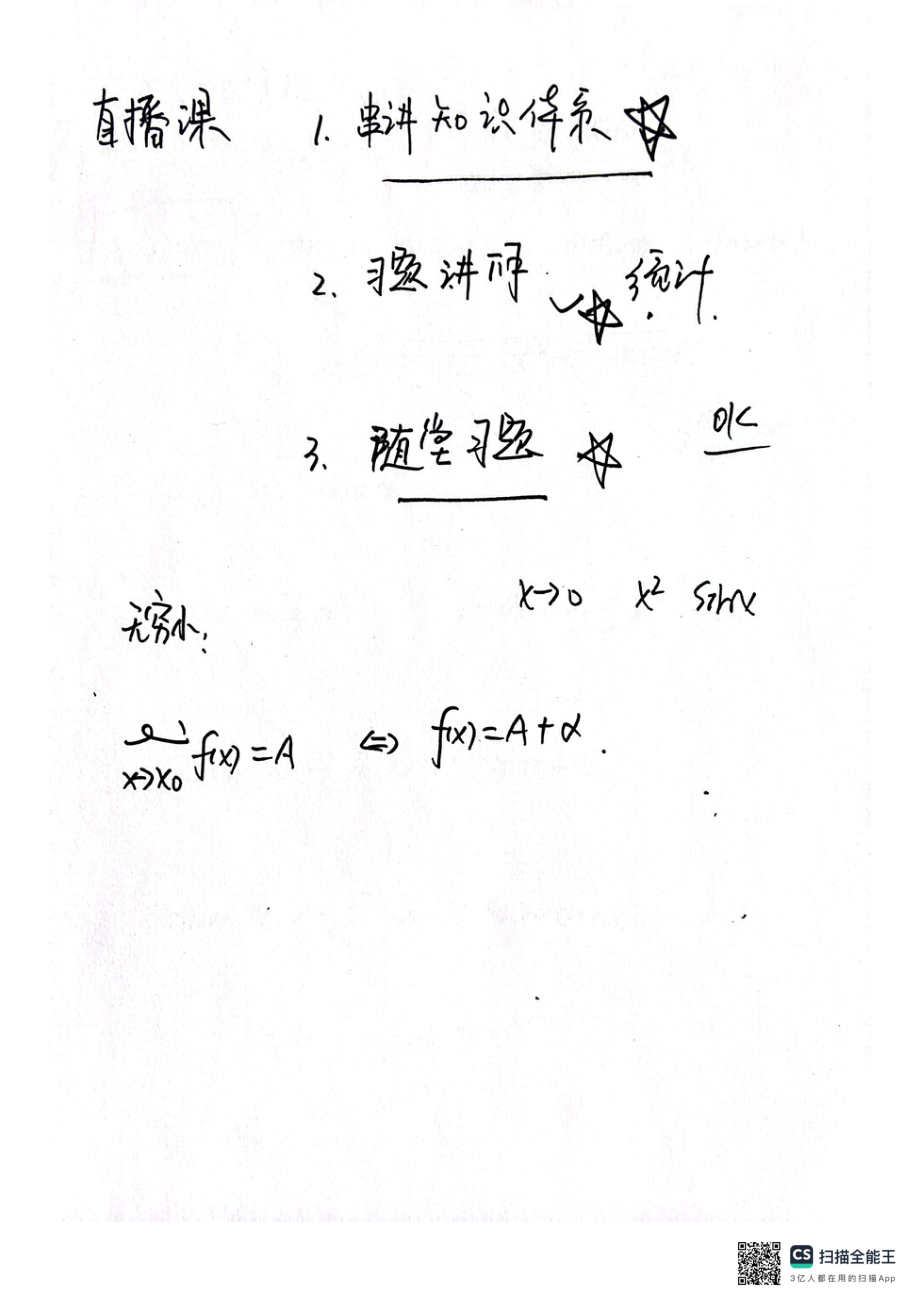 直播课 1. 串讲知识体系 ☆
2. 习题讲解. ☆ 统计.
3. 随堂习题 ☆ OK
x→0 x² sinx
无穷小:
lim x→x₀ f(x)=A ⇔ f(x)=A+α.
CS 扫描全能王
3亿人都在用的扫描App